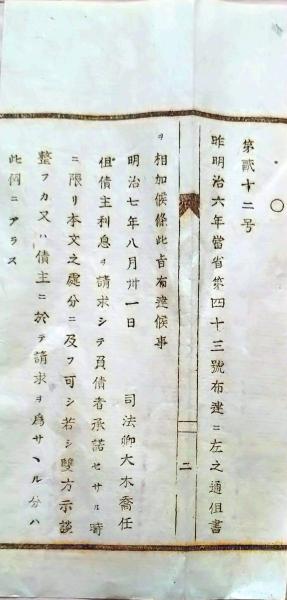 ○
第貳十二号
昨明治六年當省第四十三號布達ニ左之通但書
二
ヲ相加候條此旨布達候事
明治七年八月卅一日 司法卿大木喬任
但債主利息ヲ請求シテ負債者承諾セサル時
ニ限リ本文之處分ニ及フ可シ若シ雙方示談
整フカ又ハ債主ニ於テ請求ヲ爲サヽル分ハ
此例ニアラス